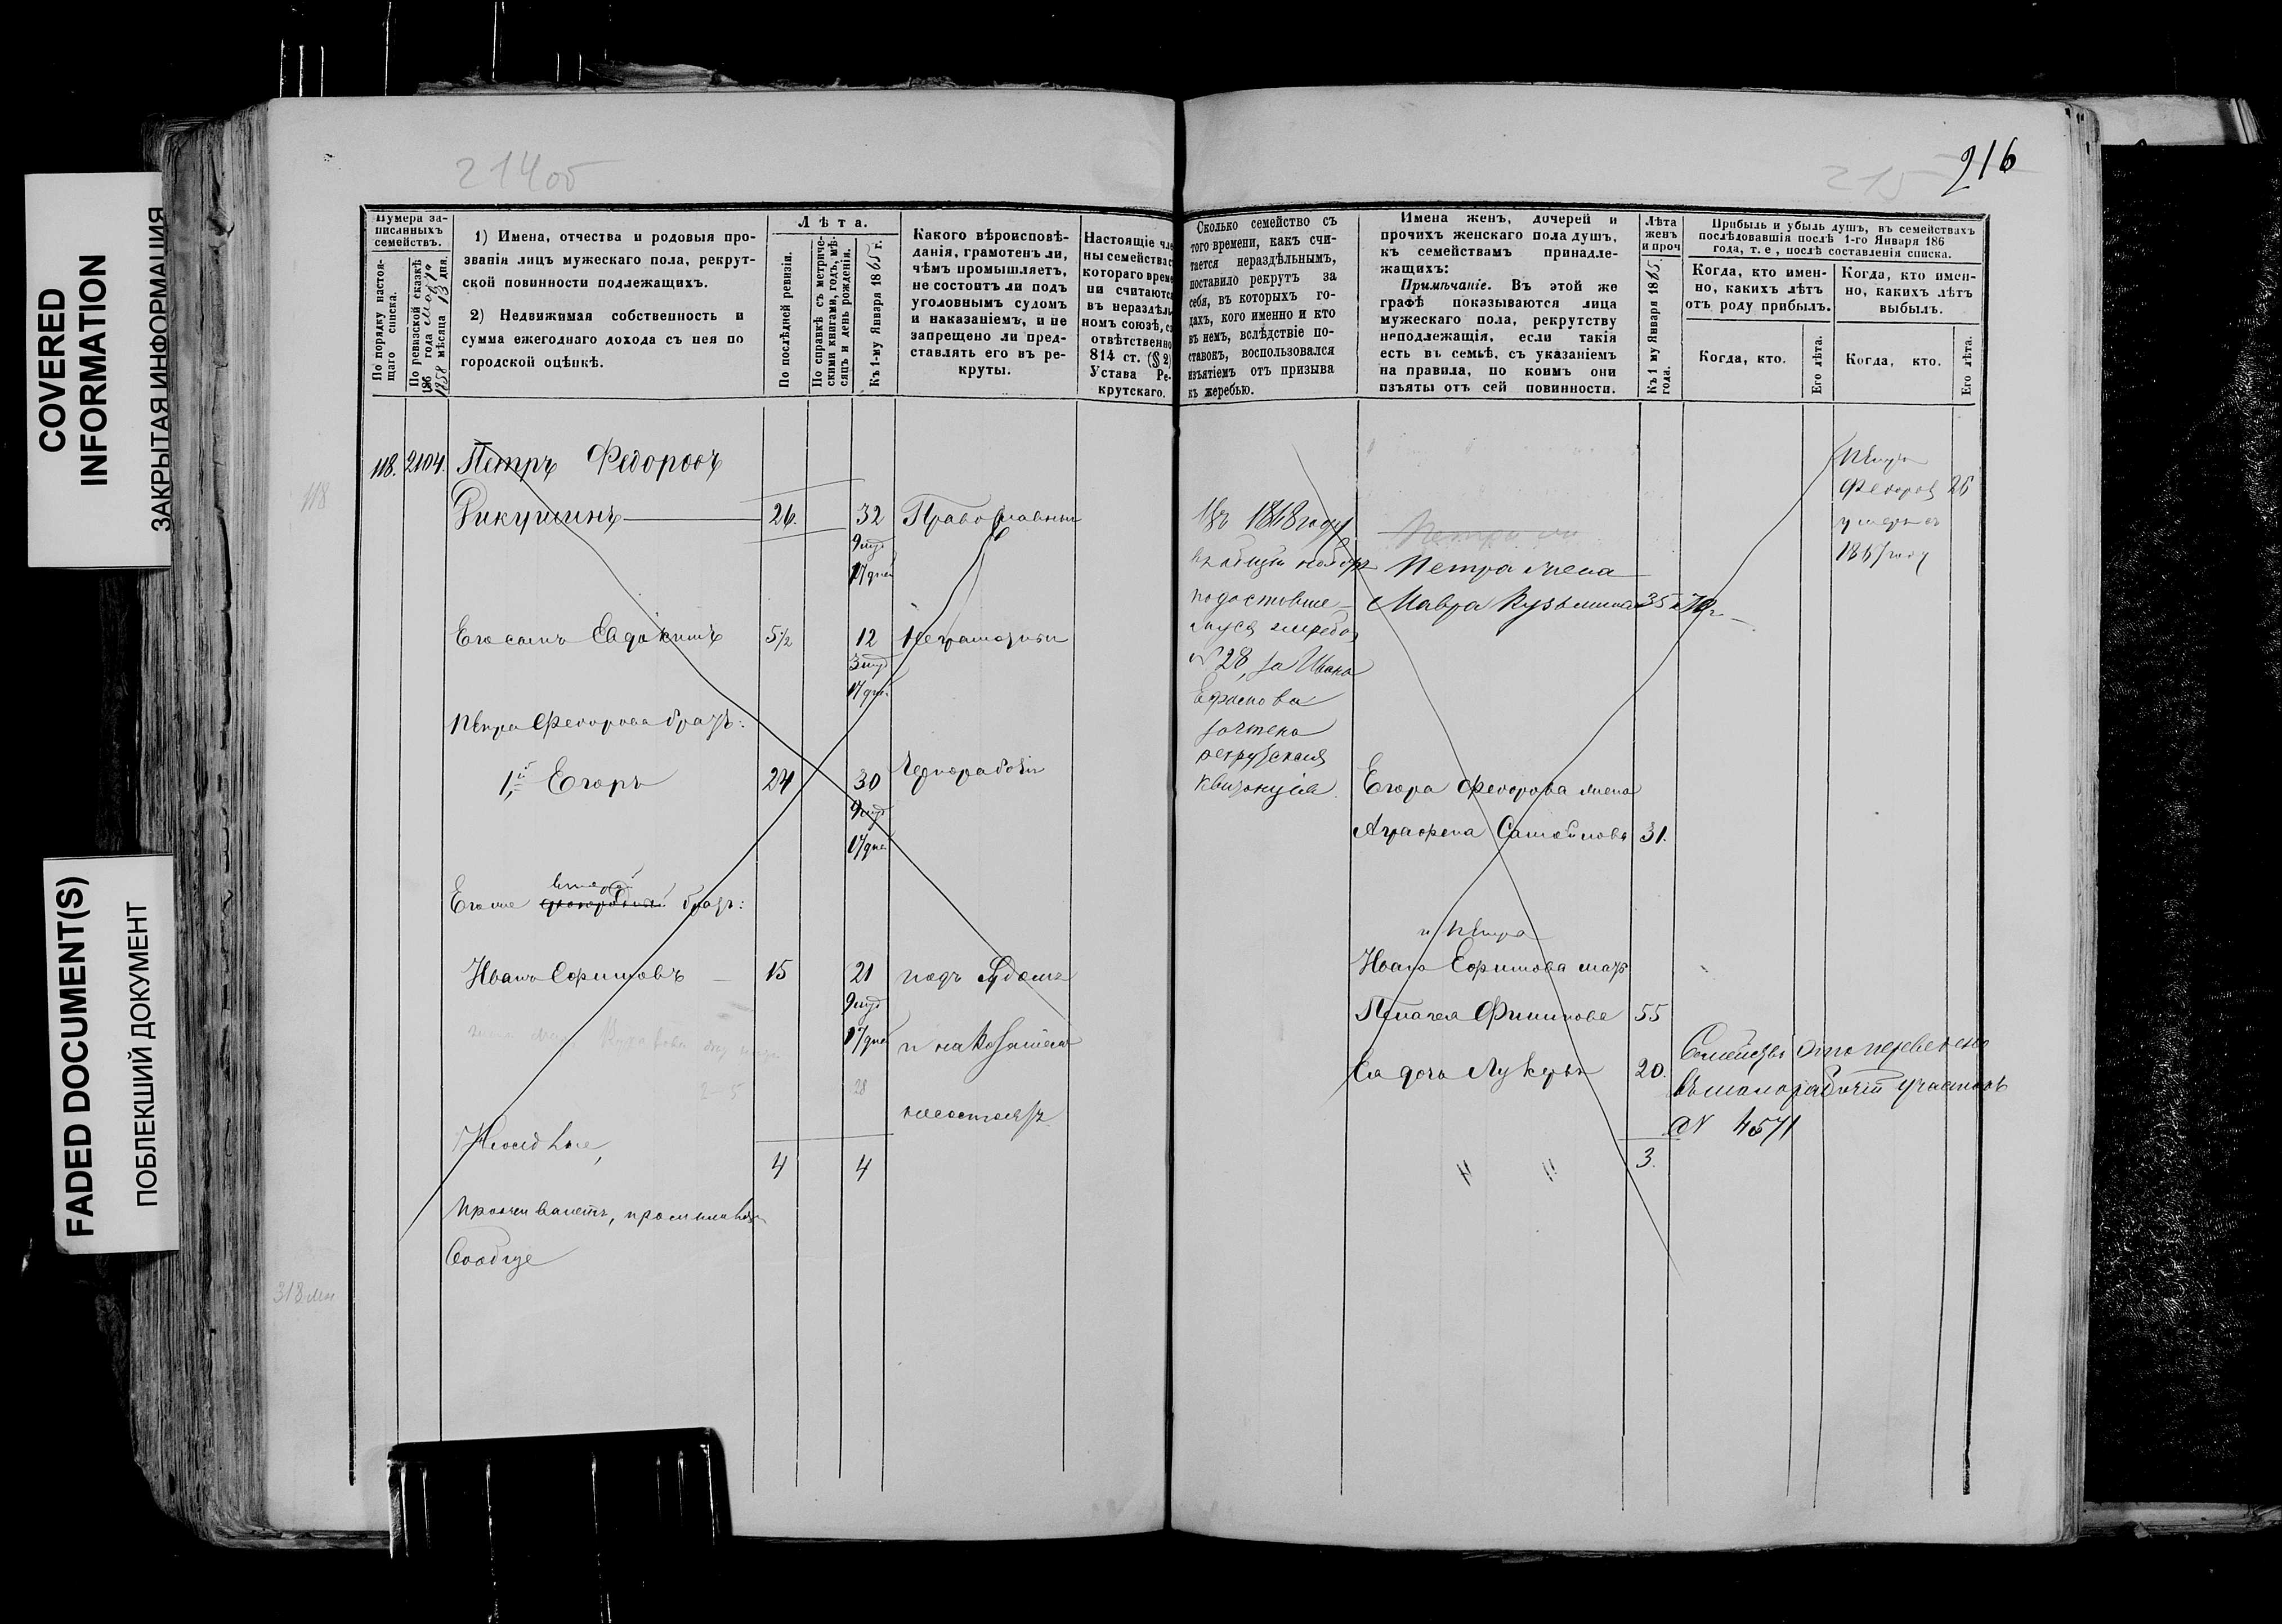 COVERED
INFORMATION
ЗАКРЫТАЯ ИНФОРМАЦИЯ
FADED DOCUMENT(S)
ПОБЛЕКШИЙ ДОКУМЕНТ
214об
Нумера за-
писанныхъ
семействъ.
По порядку настоя-
щаго списка.
По ревизской сказкѣ
186 года марта
1858 мѣсяца 13 дня.
1) Имена, отчества и родовыя про-
званія лицъ мужескаго пола, рекрут-
ской повинности подлежащихъ.
2) Недвижимая собственность и
сумма ежегоднаго дохода съ нея по
городской оцѣнкѣ.
Лѣта.
По послѣдней ревизіи.
По справкѣ съ метриче-
скими книгами, годъ, мѣ-
сяцъ и день рожденія.
Къ 1-му Января 1865 г.
Какого вѣроисповѣ-
данія, грамотенъ ли,
чѣмъ промышляетъ,
не состоитъ ли подъ
уголовнымъ судомъ
и наказаніемъ, и не
запрещено ли пред-
ставлять его въ ре-
круты.
Настоящіе чле
ны семейства с
котораго време
ни считаются
въ нераздѣль
номъ союзѣ, съ
отвѣтственно
814 ст. (§ 2)
Устава Ре-
крутскаго.
118
118. 2104. Петръ Федоровъ
26. 32 Православный
9 мѣс
17 дней
Его сынъ Евдокимъ 5½ 12 Неграмотный
3 мѣс
17 дне
Петра Федорова братъ:
1й Егоръ 24 30 Чернорабочій
9 мѣс
17 дне
Его же братъ:
Иванъ Ефимовъ 15 21 подъ Судомъ
9 мѣс
17 дне и наказаніемъ
2-5 28
несостоятъ
4 4
Проживаетъ,
Сообще
318
215
216
Сколько семейство съ
того времени, какъ счи-
тается нераздѣльнымъ,
поставило рекрутъ за
себя, въ которыхъ го-
дахъ, кого именно и кто
въ немъ, вслѣдствіе по-
ставокъ, воспользовался
изъятіемъ отъ призыва
къ жеребью.
Имена женъ, дочерей и
прочихъ женскаго пола душъ,
къ семействамъ принадле-
жащихъ:
Примѣчаніе. Въ этой же
графѣ показываются лица
мужескаго пола, рекрутству
неподлежащія, если такія
есть въ семьѣ, съ указаніемъ
на правила, по коимъ они
изъяты отъ сей повинности.
Лѣта
женъ
и проч
Къ 1 му Января 1865.
года.
Прибыль и убыль душъ, въ семействахъ
послѣдовавшія послѣ 1-го Января 186
года, т. е, послѣ составленія списка.
Когда, кто имен-
но, какихъ лѣтъ
отъ роду прибылъ.
Когда, кто имен-
но, какихъ лѣтъ
выбылъ.
Когда, кто.
Его лѣта.
Когда, кто.
Его лѣта.
Петръ
Федоров 26
умеръ въ
году
Въ 1868 году
Петра жена
Мавра Кузьмина 35
№ 28, за Ивана
Ефимова
зачтена
рекрутская
квитанція
Егора Федорова жена
Аграфена Самойлова 31.
и Петра
Ивана Ефимова мать
Пелагея Филипова 55
Ея дочь Лукерья 20.
Семейство это переведено
въ малорабочій участокъ
№ 4571
" " 3.